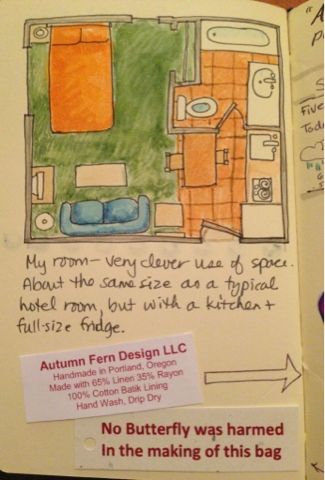 My room - very clever use of space.
About the same size as a typical
hotel room, but with a kitchen +
full-size fridge.
Autumn Fern Design LLC
Handmade in Portland, Oregon
Made with 65% Linen 35% Rayon
100% Cotton Batik Lining
Hand Wash, Drip Dry
No Butterfly was harmed
In the making of this bag
Five